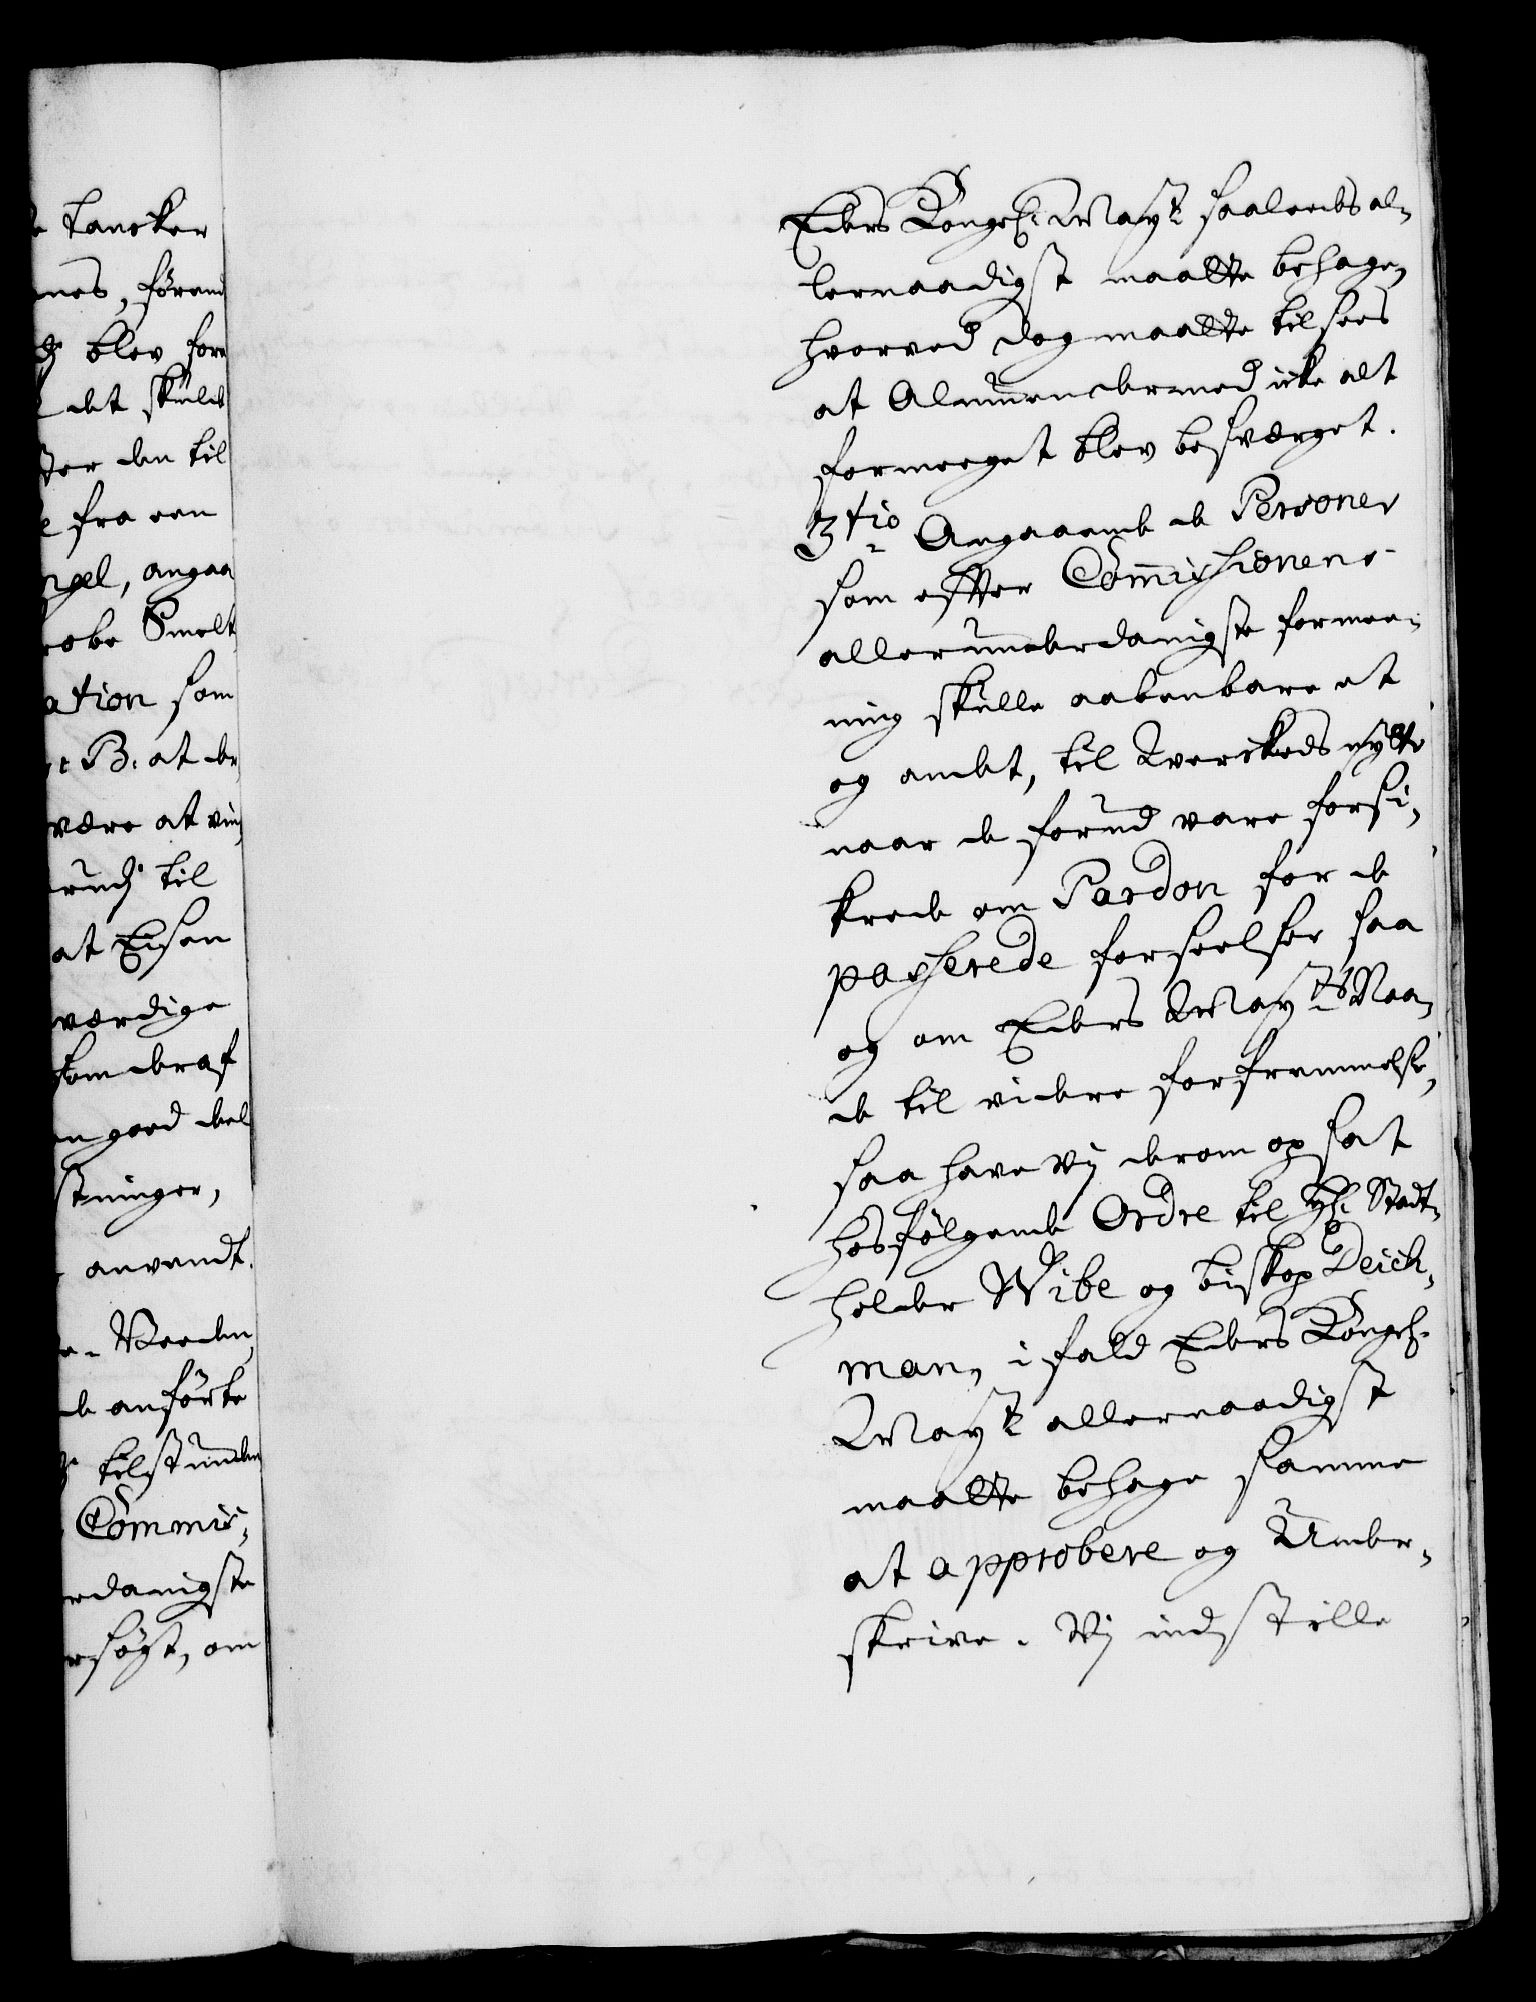 tancker
nes, förend
blev for¬
det skulde
ter den til
fra een
ngel, angaa
robe Smelt
ation som
B. at de
være at vin
rund til
at Eisen
værdige
som deraf
en good deel
stninger,
anvendt.
Verden
de anförte
tilstunden
Commis¬
rdanigste
rsögt, om
Eders Kongel: Mayt saaleedes al¬
lernaadigst maatte behage,
hvorved dog maatte tilsees
at Almuen dermed icke alt
formeeget blev besværget.
3tio Angaaende de Personer
som efter Commissionens
allerunderdanigste formee¬
ning skulle aabenbare et
og andet, til Verckeds nytte
naar de forud vare forsi¬
krede om Pardon for de
passerede forseelser saa
og om Eders Mayts Naa¬
de til videre forfremmelse,
saa have vij derom opsat
hosfölgende Ordre til H: Stadt¬
holder Wibe og biskop Deich¬
man, i fald Eders Kongel:
Mayt allernaadigst
maatte behage samme
at approbere og Under¬
skrive. Vij indstille